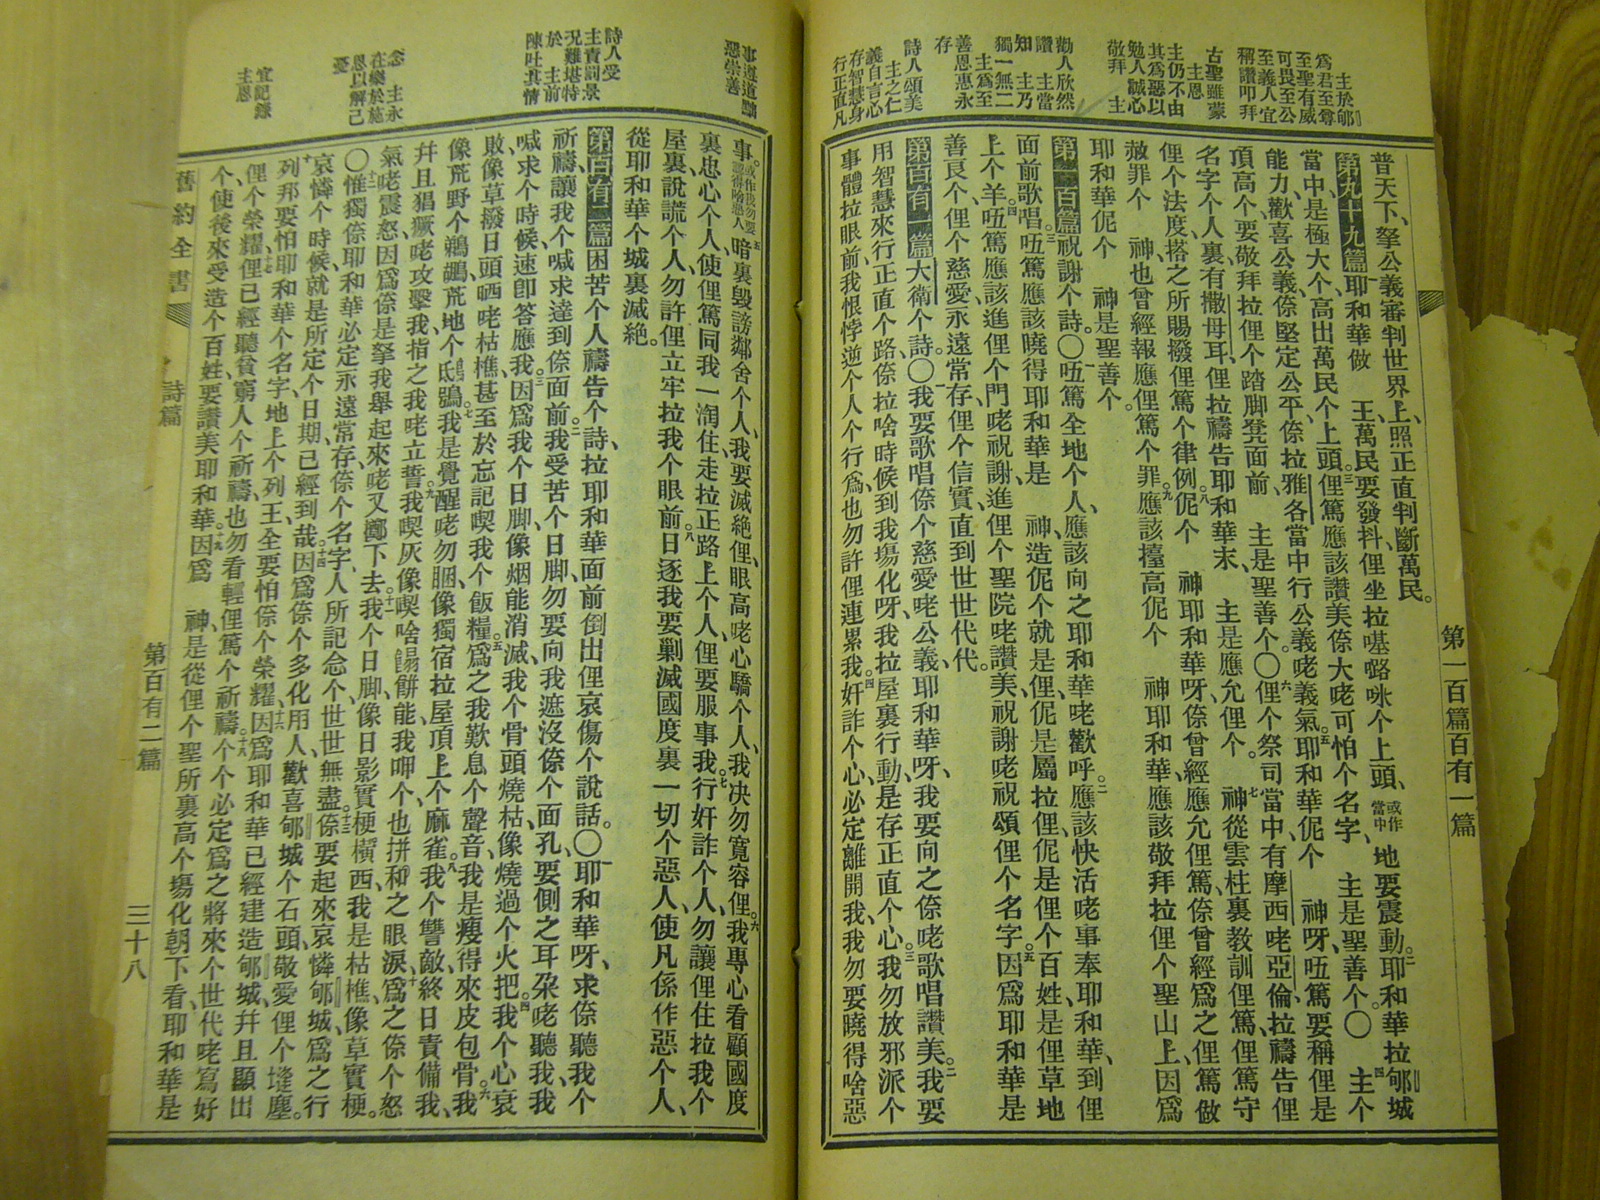 主於郇
為君至尊
至聖有威
可畏至公
至義人宜
稱讚叩拜
古聖雖蒙
主恩
主仍不由
其為惡以
勉人誠心
敬拜 主
勸人欣然
讚 主當
知 主乃
獨一無二
主為至
善恩惠永
存
詩人頌美
主之仁
義自言心
存智慧身
行正直凡
第一百篇百有一篇
普天下、拏公義審判世界上、照正直判斷萬民。
第九十九篇 耶和華做 王、萬民要發抖、俚坐拉𠼻𡀔㕸个上頭、或作當中地要震動。二耶和華拉郇城
當中、是極大个、高出萬民个上頭。三俚篤應該讚美倷大咾可怕个名字、 主是聖善个。〇四 主个
能力、歡喜公義、倷堅定公平、倷拉雅各當中行公義咾義氣。五耶和華伲个 神呀、㑚篤要稱俚是
頂高个、要敬拜拉俚个踏脚凳面前、 主是聖善个。〇六俚个祭司當中、有摩西咾亞倫、拉禱告俚
名字个人裏有撒母耳、俚拉禱告耶和華末、 主是應允俚个。七 神從雲柱裏教訓俚篤、俚篤守
俚个法度、搭之所賜撥俚篤个律例。八伲个 神耶和華呀、倷曾經應允俚篤、倷曾經為之俚篤做
赦罪个 神、也曾經報應俚篤个罪。九應該擡高伲个 神耶和華、應該敬拜拉俚个聖山上、因為
耶和華伲个 神是聖善个。
第一百篇 祝謝个詩。〇㑚篤全地个人、應該向之耶和華咾歡呼。二應該快活咾事奉耶和華、到俚
面前歌唱。三㑚篤應該曉得耶和華是 神、造伲个就是俚、伲是屬拉俚、伲是俚个百姓、是俚草地
上个羊。四㑚篤應該進俚个門咾祝謝、進俚个聖院咾讚美、祝謝咾祝頌俚个名字。五因為耶和華是
善良个、俚个慈愛、永遠常存、俚个信實、直到世世代代。
第百有一篇 大衛个詩。〇我要歌唱倷个慈愛咾公義、耶和華呀、我要向之倷咾歌唱讚美。二我要
用智慧來行正直个路、倷拉啥時候到我塲化呀、我拉屋裏行動、是存正直个心。三我勿放邪派个
事體拉眼前、我恨悖逆个人个行為、也勿許俚連累我。四奸詐个心、必定離開我、我勿要曉得啥惡
事道道黜
惡崇善
詩人受
主責罰景
況難堪特
於 主前
陳吐其情
念 主永
在樂於施
恩以解己
憂
宜記錄
主恩
事。或作我勿要認得啥惡人五暗裏毀謗鄰舍个人、我要滅絕俚、眼高咾心驕个人、我决勿寬容俚。六我專心看顧國度
裏忠心个人、使俚篤同我一淘住、走拉正路上个人、俚要服事我。七行奸詐个人、勿讓俚住拉我个
屋裏、說謊个人、勿許俚立牢拉我个眼前。八日逐我要剿滅國度裏一切个惡人、使凡係作惡个人、
從耶和華个城裏滅絕。
第百有二篇 困苦个人禱告个詩、拉耶和華面前倒出俚哀傷个說話。〇耶和華呀、求倷聽我个
祈禱、讓我个喊求達到倷面前。二我受苦个日脚、勿要向我遮沒倷个面孔、要側之耳朶咾聽我、我
喊求个時候、速卽答應我。三因為我个日脚、像烟能消滅、我个骨頭燒枯、像燒過个火把。四我个心衰
敗、像草撥日頭晒咾枯樵、甚至於忘記喫我个飯糧。五為之我歎息个聲音、我是瘦得來皮包骨。六我
像荒野个鵜鶘、荒地个鴟鴞。七我是覺醒咾勿睏、像獨宿拉屋頂上个麻雀。八我个讐敵、終日責備我、
幷且猖獗咾攻擊我、指之我咾立誓。九我喫灰像喫啥餳餅能、我呷个也拼和之眼淚。十為之倷个怒
氣咾震怒、因為倷是拏我舉起來咾又擲下去。十一我个日脚、像日影實梗橫西、我是枯樵像草實梗。
〇十二惟獨倷耶和華、必定永遠常存、倷个名字、人所記念个、世世無盡。十三倷要起來哀憐郇城、為之行
哀憐个時候、就是所定个日期、已經到哉。十四因為倷个多化用人、歡喜郇城个石頭、敬愛俚个𡏖塵。
十五列邦要怕耶和華个名字、地上个列王、全要怕倷个榮耀。十六因為耶和華已經建造郇城、幷且顯出
俚个榮耀。十七俚已經聽貧窮人个祈禱、也勿看輕俚篤个祈禱。十八个个必定為之將來个世代咾寫好
个、使後來受造个百姓、要讚美耶和華。十九因為 神、是從俚个聖所裏高个塲化朝下看、耶和華是
舊約全書 詩篇 第百有二篇 三十八